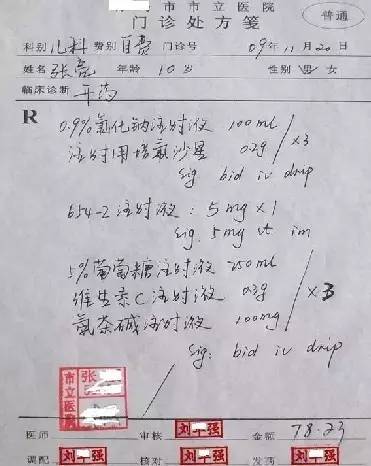 市市立医院
门诊处方笺
普通
科别 儿科 费别 自费 门诊号 09年11月20日
姓名 张亮 年龄 10岁 性别 男 女
临床诊断
R
0.9%氯化钠注射液 100ml
注射用培氟沙星 0.2g / ×3
sig. bid iv drip
654-2注射液: 5mg×1
sig. 5mg st im
5%葡萄糖注射液 250ml
维生素C注射液 / ×3
氨茶碱注射液 100mg
sig: bid iv drip
市立医院 张
医师 审核 刘 强 金额 78.23
调配 刘 强 核对 刘 强 发药 刘 强